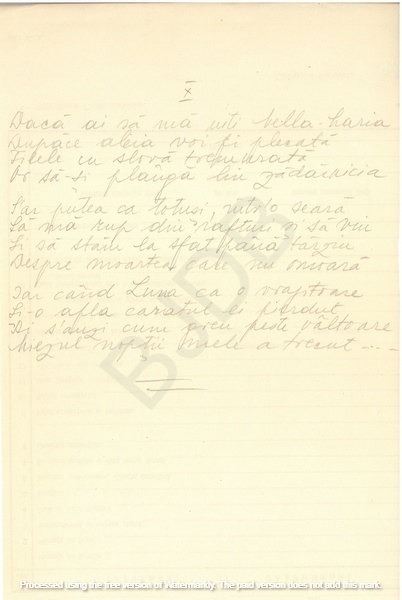 X
Dacă ai să mă uiți bella-haria
Dupăce abia voi fi plecată
Filele cu slovă tremurată
Or să-și plângă lin zădărnicia
S'ar putea ca totuși, într'o seară
Să mă rup din rafturi și să viu
Și să stăm la sfat până târziu
Despre moartea care nu omoară
Iar când Luna ca o vrăjitoare
Și-o afla caratul ei pierdut
Ai s'auzi cum greu peste vâltoare
Miezul nopții mele a trecut...
BJDB
Processed using the free version of Watermarkly. The paid version does not add this mark.